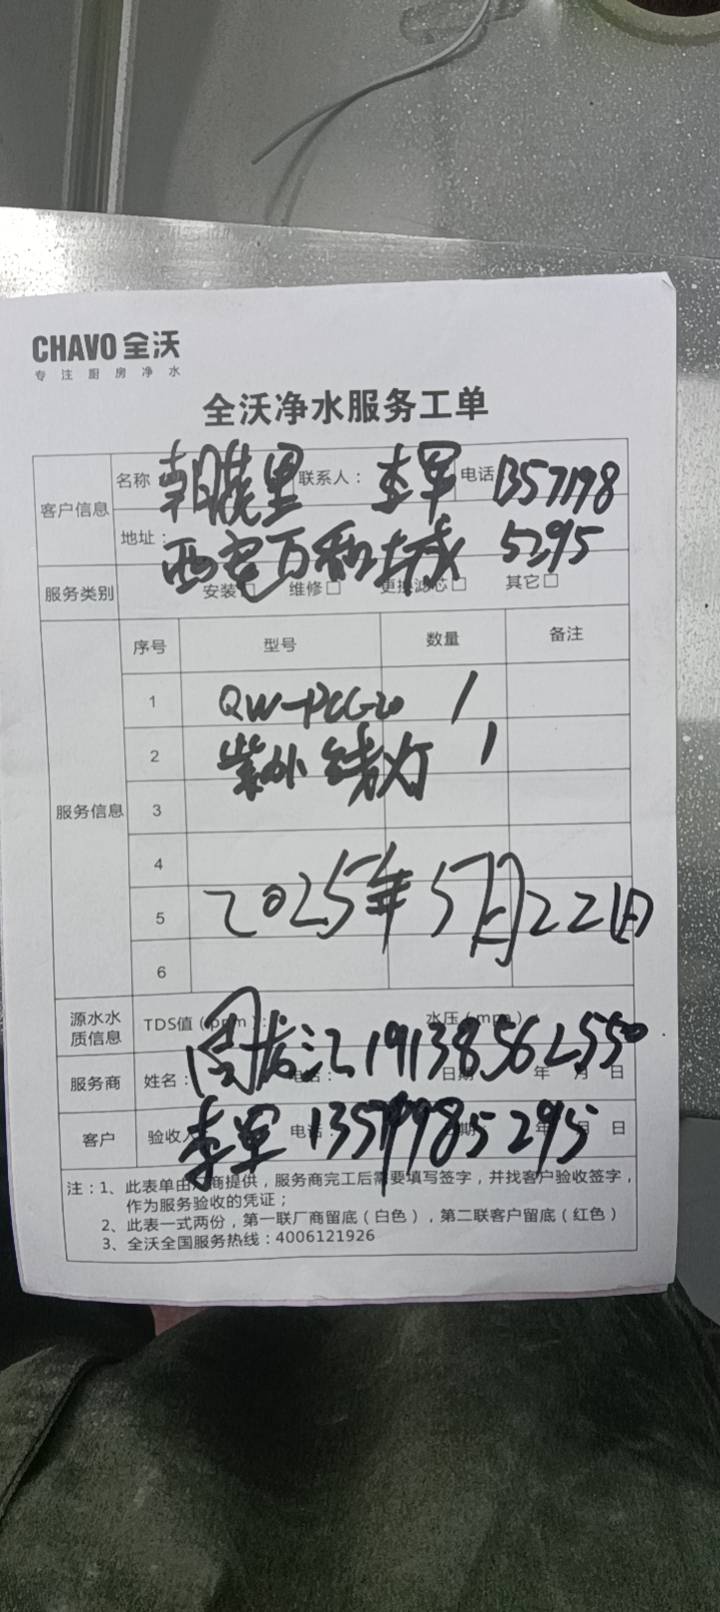 CHAVO 全沃
专注厨房净水
全沃净水服务工单
客户信息 名称 联系人： 李军 电话 1357198
地址： 西安万和城 5295
服务类别 安装□ 维修□ 更换滤芯□ 其它□
服务信息 序号 型号 数量 备注
1 QW-PCG20 1
2 紫外线灯 1
3
4
5 2025年5月22日
6
源水水质信息 TDS值（ppm）： 水压（mpa）
服务商 姓名： 周龙江 19138562550 日期 年 月 日
客户 验收人 李军 电话： 年 月 日
注：1、此表单由厂商提供，服务商完工后需要填写签字，并找客户验收签字，
作为服务验收的凭证；
2、此表一式两份，第一联厂商留底（白色），第二联客户留底（红色）
3、全沃全国服务热线：4006121926